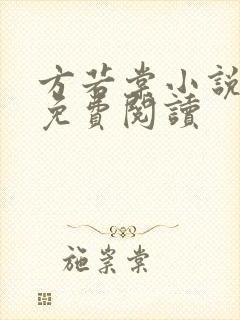 方若棠小說
免費閱讀
施崇棠